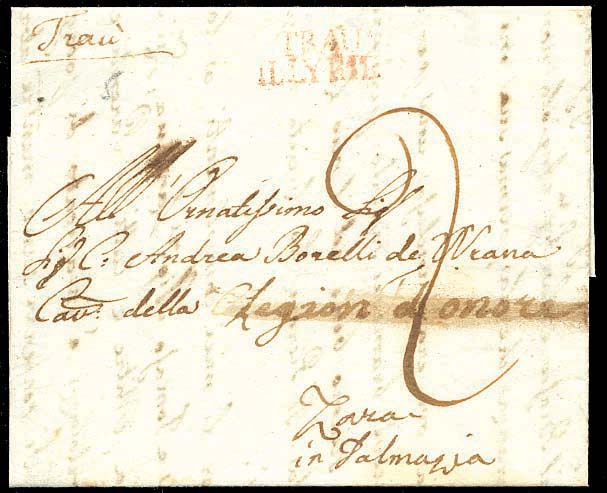 Traù
TRAU
ILLYRIE
All' Ornatissimo Sigr
Sigr C: Andrea Borelli de Wrana
Cavr. della Legion d'onore
2
Zara
in Dalmazia